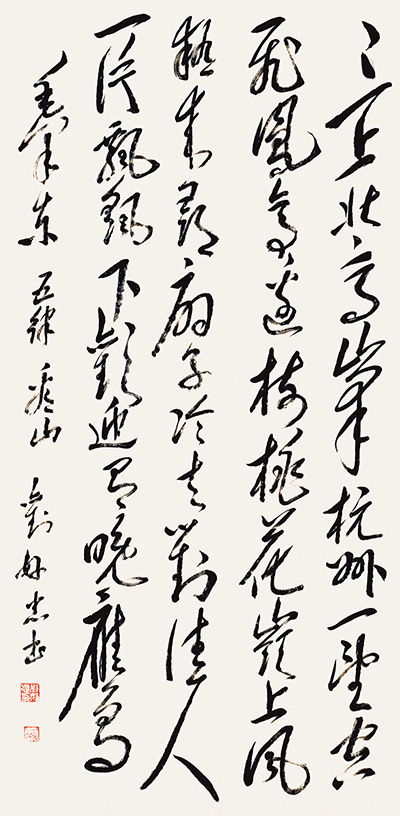 三上北高峰杭州一望空
飛鳳亭邊樹桃花嶺上風
熱來尋扇子冷去對佳人
一片飄飄下歡迎有晚鷹
毛澤東 五律 看山 劉 忠書